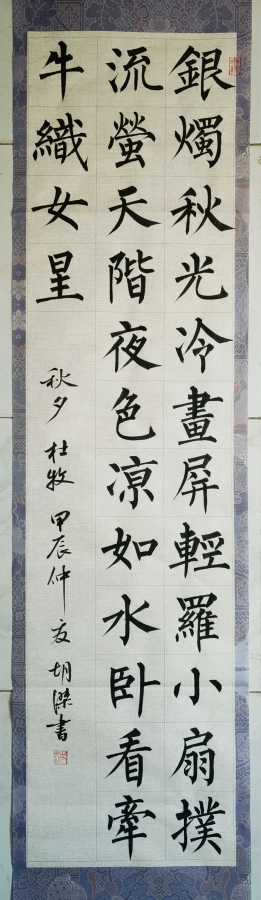 銀燭秋光冷畫屏輕羅小扇撲
流螢天階夜色凉如水卧看牽
牛織女星
秋夕 杜牧 甲辰仲夏 胡傑書